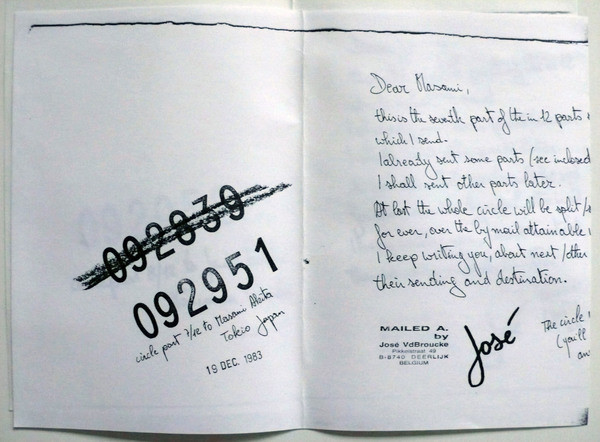 092839
092951
circle part 7/12 to Masami Akita
Tokio Japan
19 DEC. 1983
Dear Masami,
this is the seventh part of the in 12 parts
which I send.
I already sent some parts (see inclosed
I shall sent other parts later.
At last the whole circle will be split/
for ever, over the by mail attainable
I keep writing you, about next/other
their sending and destination.
MAILED A.
by
José VdBroucke
Pikkelstraat 49
B-8740 DEERLIJK
BELGIUM
José
The circle
(you'll
an